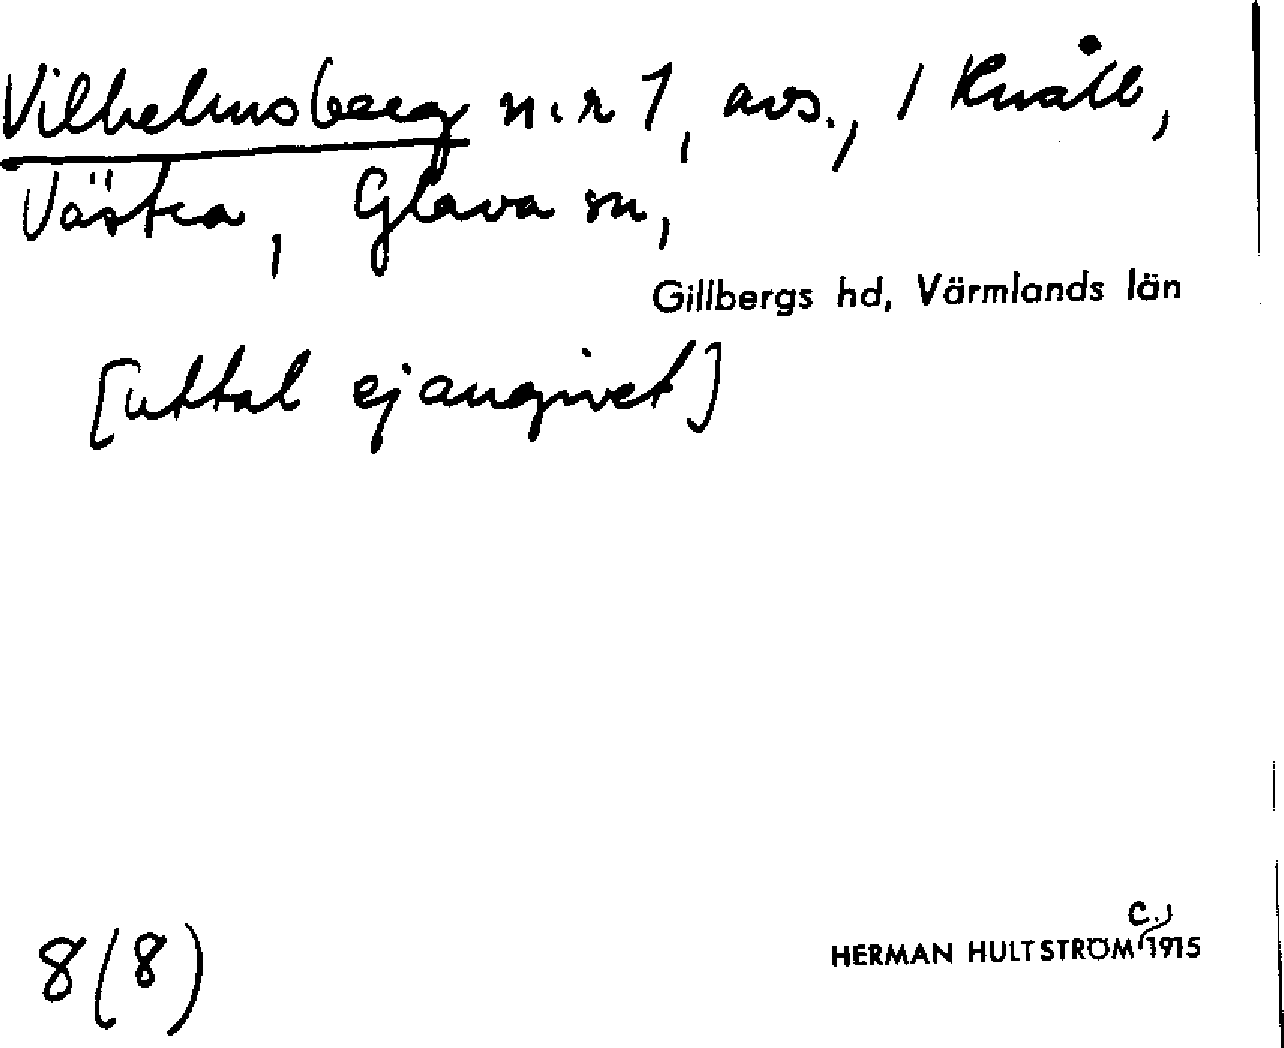 Vilhelmsberg n.r 1, avs., 1 Knåll,
Västra, Glava sn,
Gillbergs hd, Värmlands län
[uttal ej angivet]
c.
HERMAN HULTSTRÖM 1915
8(8)